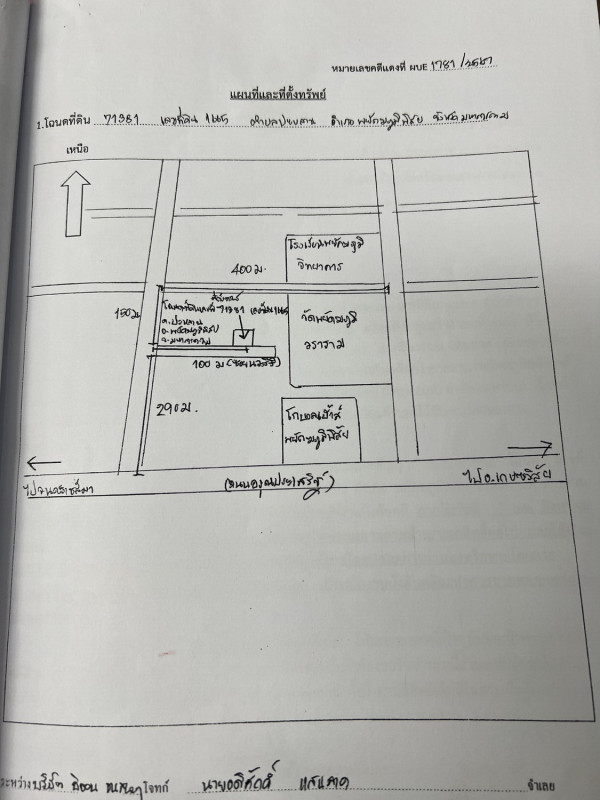 หมายเลขคดีแดงที่ ผบE 1781/2567
แผนที่และที่ตั้งทรัพย์
1.โฉนดที่ดิน 71381 เลขที่ดิน 1665 ตำบลปะหลาน อำเภอพยัคฆภูมิพิสัย จังหวัดมหาสารคาม
เหนือ
โรงเรียนพยัคฆภูมิ
วิทยาคาร
400 ม.
150 ม.
ที่ตั้งทรัพย์
โฉนดที่ดินเลขที่ 71381 เลขที่ดิน 1665
ต.ปะหลาน
อ.พยัคฆภูมิพิสัย
จ.มหาสารคาม
วัดพยัคฆภูมิ
วราราม
100 ม
290 ม.
พยัคฆภูมิพิสัย
ไปจ.นครราชสีมา
ไป อ.เกษตรวิสัย
ระหว่าง บริษัท โจทก์ นายอดิศักดิ์ จำเลย